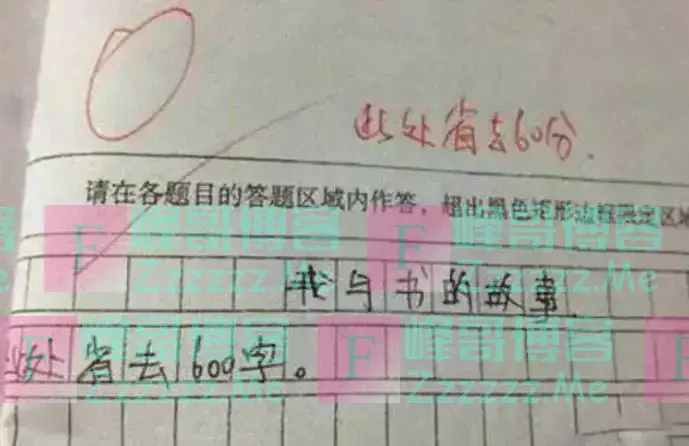 0
此处省去60分.
请在各题目的答题区域内作答，超出黑色矩形边框限定区域
我与书的故事.
此处省去600字。
F 峰哥博客 Zzzzzz.Me
F 峰哥博客 Zzzzzz.Me
F 峰哥博客 Zzzzzz.Me
F 峰哥博客 Zzzzzz.Me